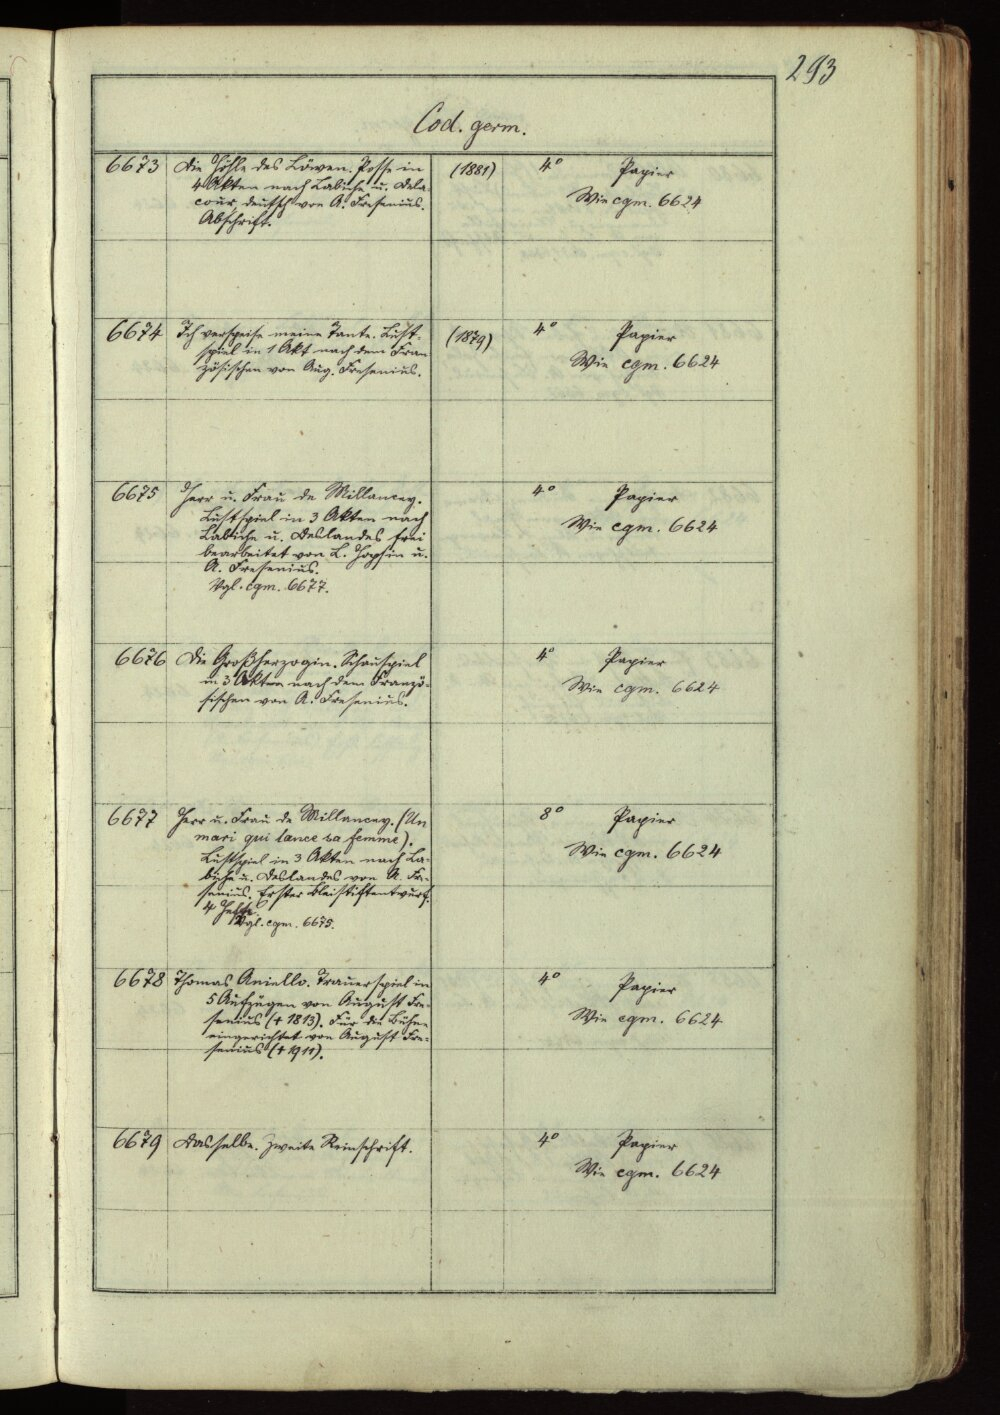 293
Cod. germ.
6673 Die Höhle des Löwen. Posse in (1881) 4° Papier
4 Akten nach Labiche u. Dela- Wie cgm. 6624
cour, deutsch von A. Fresenius.
Abschrift.
6674 Ich verspeise meine Tante. Lust- (1879) 4° Papier
spiel in 1 Akt nach dem Fran- Wie cgm. 6624
zösischen von Aug. Fresenius.
6675 Herr u. Frau de Millancey. 4° Papier
Lustspiel in 3 Akten nach Wie cgm. 6624
Labiche u. Deslandes frei
bearbeitet von L. u.
A. Fresenius.
Vgl. cgm. 6677.
6676 Die Großherzogin. Schauspiel 4° Papier
in 3 Akten nach dem Franzö- Wie cgm. 6624
sischen von A. Fresenius.
6677 Herr u. Frau de Millancey. (Un 8° Papier
mari qui lance sa femme). Wie cgm. 6624
Lustspiel in 3 Akten nach La-
biche u. Deslandes von A. Fre-
senius. Erster Bleistiftentwurf.
4 Hefte.
Vgl. cgm. 6675.
6678 Thomas Aniello. Trauerspiel in 4° Papier
5 Aufzügen von August Fre- Wie cgm. 6624
senius († 1813). Für die Bühne
eingerichtet von August Fre-
senius († 1911).
6679 Dasselbe. Zweite Reinschrift. 4° Papier
Wie cgm. 6624